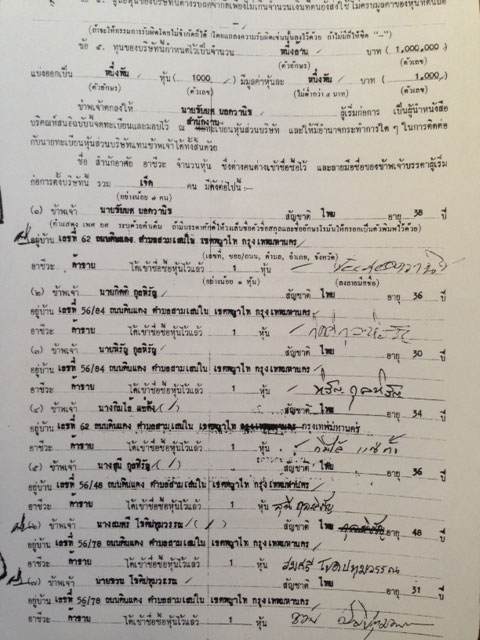 ข้อ ๕. ทุนของบริษัทกำหนดไว้เป็นจำนวน หนึ่งล้าน บาท (1,000,000)
(ตัวอักษร) (ตัวเลข)
แบ่งออกเป็น หนึ่งพัน หุ้น ( 1000 ) มีมูลค่าหุ้นละ หนึ่งพัน บาท ( 1,000 )
(ตัวอักษร) (ตัวเลข) (ไม่ต่ำกว่า ๕ บาท) (ตัวเลข)
ข้าพเจ้าตกลงให้ ผู้เริ่มก่อการ เป็นผู้นำหนังสือ
บริคณห์สนธิฉบับนี้จดทะเบียนและมอบไว้ ณ สำนักงานทะเบียนหุ้นส่วนบริษัท และให้มีอำนาจกระทำการใด ๆ ในการติดต่อ
กับนายทะเบียนหุ้นส่วนบริษัทแทนข้าพเจ้าได้ทั้งสิ้นด้วย
ชื่อ สำนักอาศัย อาชีวะ จำนวนหุ้น ซึ่งต่างคนต่างเข้าชื่อซื้อไว้ และลายมือชื่อของข้าพเจ้าบรรดาผู้เริ่ม
ก่อการตั้งบริษัทนี้ รวม เจ็ด คน มีดังต่อไปนี้ :-
(อย่างน้อย ๗ คน)
(๑) ข้าพเจ้า สัญชาติ ไทย อายุ 38 ปี
อยู่บ้าน เลขที่ 62 ถนนดินแดง ตำบลสามเสนใน เขตพญาไท กรุงเทพมหานคร
(เลขที่, ซอย/ถนน, ตำบล, อำเภอ, จังหวัด)
อาชีวะ ค้าขาย ได้เข้าชื่อซื้อหุ้นไว้แล้ว 1 หุ้น
(อย่างน้อย ๑ หุ้น) (ลงลายมือชื่อ)
(๒) ข้าพเจ้า นายกิตติ กุลหิรัญ สัญชาติ ไทย อายุ 36 ปี
อยู่บ้าน เลขที่ 56/84 ถนนดินแดง ตำบลสามเสนใน เขตพญาไท กรุงเทพมหานคร
อาชีวะ ค้าขาย ได้เข้าชื่อซื้อหุ้นไว้แล้ว 1 หุ้น
(๓) ข้าพเจ้า นายหิรัญ กุลหิรัญ สัญชาติ ไทย อายุ 30 ปี
อยู่บ้าน เลขที่ 56/84 ถนนดินแดง ตำบลสามเสนใน เขตพญาไท กรุงเทพมหานคร
อาชีวะ ค้าขาย ได้เข้าชื่อซื้อหุ้นไว้แล้ว 1 หุ้น หิรัญ กุลหิรัญ
(๔) ข้าพเจ้า นางกิมไล้ แซ่ตั้ง สัญชาติ ไทย อายุ 34 ปี
อยู่บ้าน เลขที่ 62 ถนนดินแดง ตำบลสามเสนใน เขตพญาไท กรุงเทพมหานคร
อาชีวะ ค้าขาย ได้เข้าชื่อซื้อหุ้นไว้แล้ว 1 หุ้น กิมไล้ แซ่ตั้ง
(๕) ข้าพเจ้า นางสุนี กุลหิรัญ สัญชาติ ไทย อายุ 36 ปี
อยู่บ้าน เลขที่ 56/48 ถนนดินแดง ตำบลสามเสนใน เขตพญาไท กรุงเทพมหานคร
อาชีวะ ค้าขาย ได้เข้าชื่อซื้อหุ้นไว้แล้ว 1 หุ้น สุนี กุลหิรัญ
(๖) ข้าพเจ้า นางสมศรี โชติปทุมวรรณ สัญชาติ ไทย อายุ 48 ปี
อยู่บ้าน เลขที่ 56/78 ถนนดินแดง ตำบลสามเสนใน เขตพญาไท กรุงเทพมหานคร
อาชีวะ ค้าขาย ได้เข้าชื่อซื้อหุ้นไว้แล้ว 1 หุ้น สมศรี โชติปทุมวรรณ
(๗) ข้าพเจ้า นายชวน โชติปทุมวรรณ สัญชาติ ไทย อายุ 31 ปี
อยู่บ้าน เลขที่ 56/78 ถนนดินแดง ตำบลสามเสนใน เขตพญาไท กรุงเทพมหานคร
อาชีวะ ค้าขาย ได้เข้าชื่อซื้อหุ้นไว้แล้ว 1 หุ้น ชวน